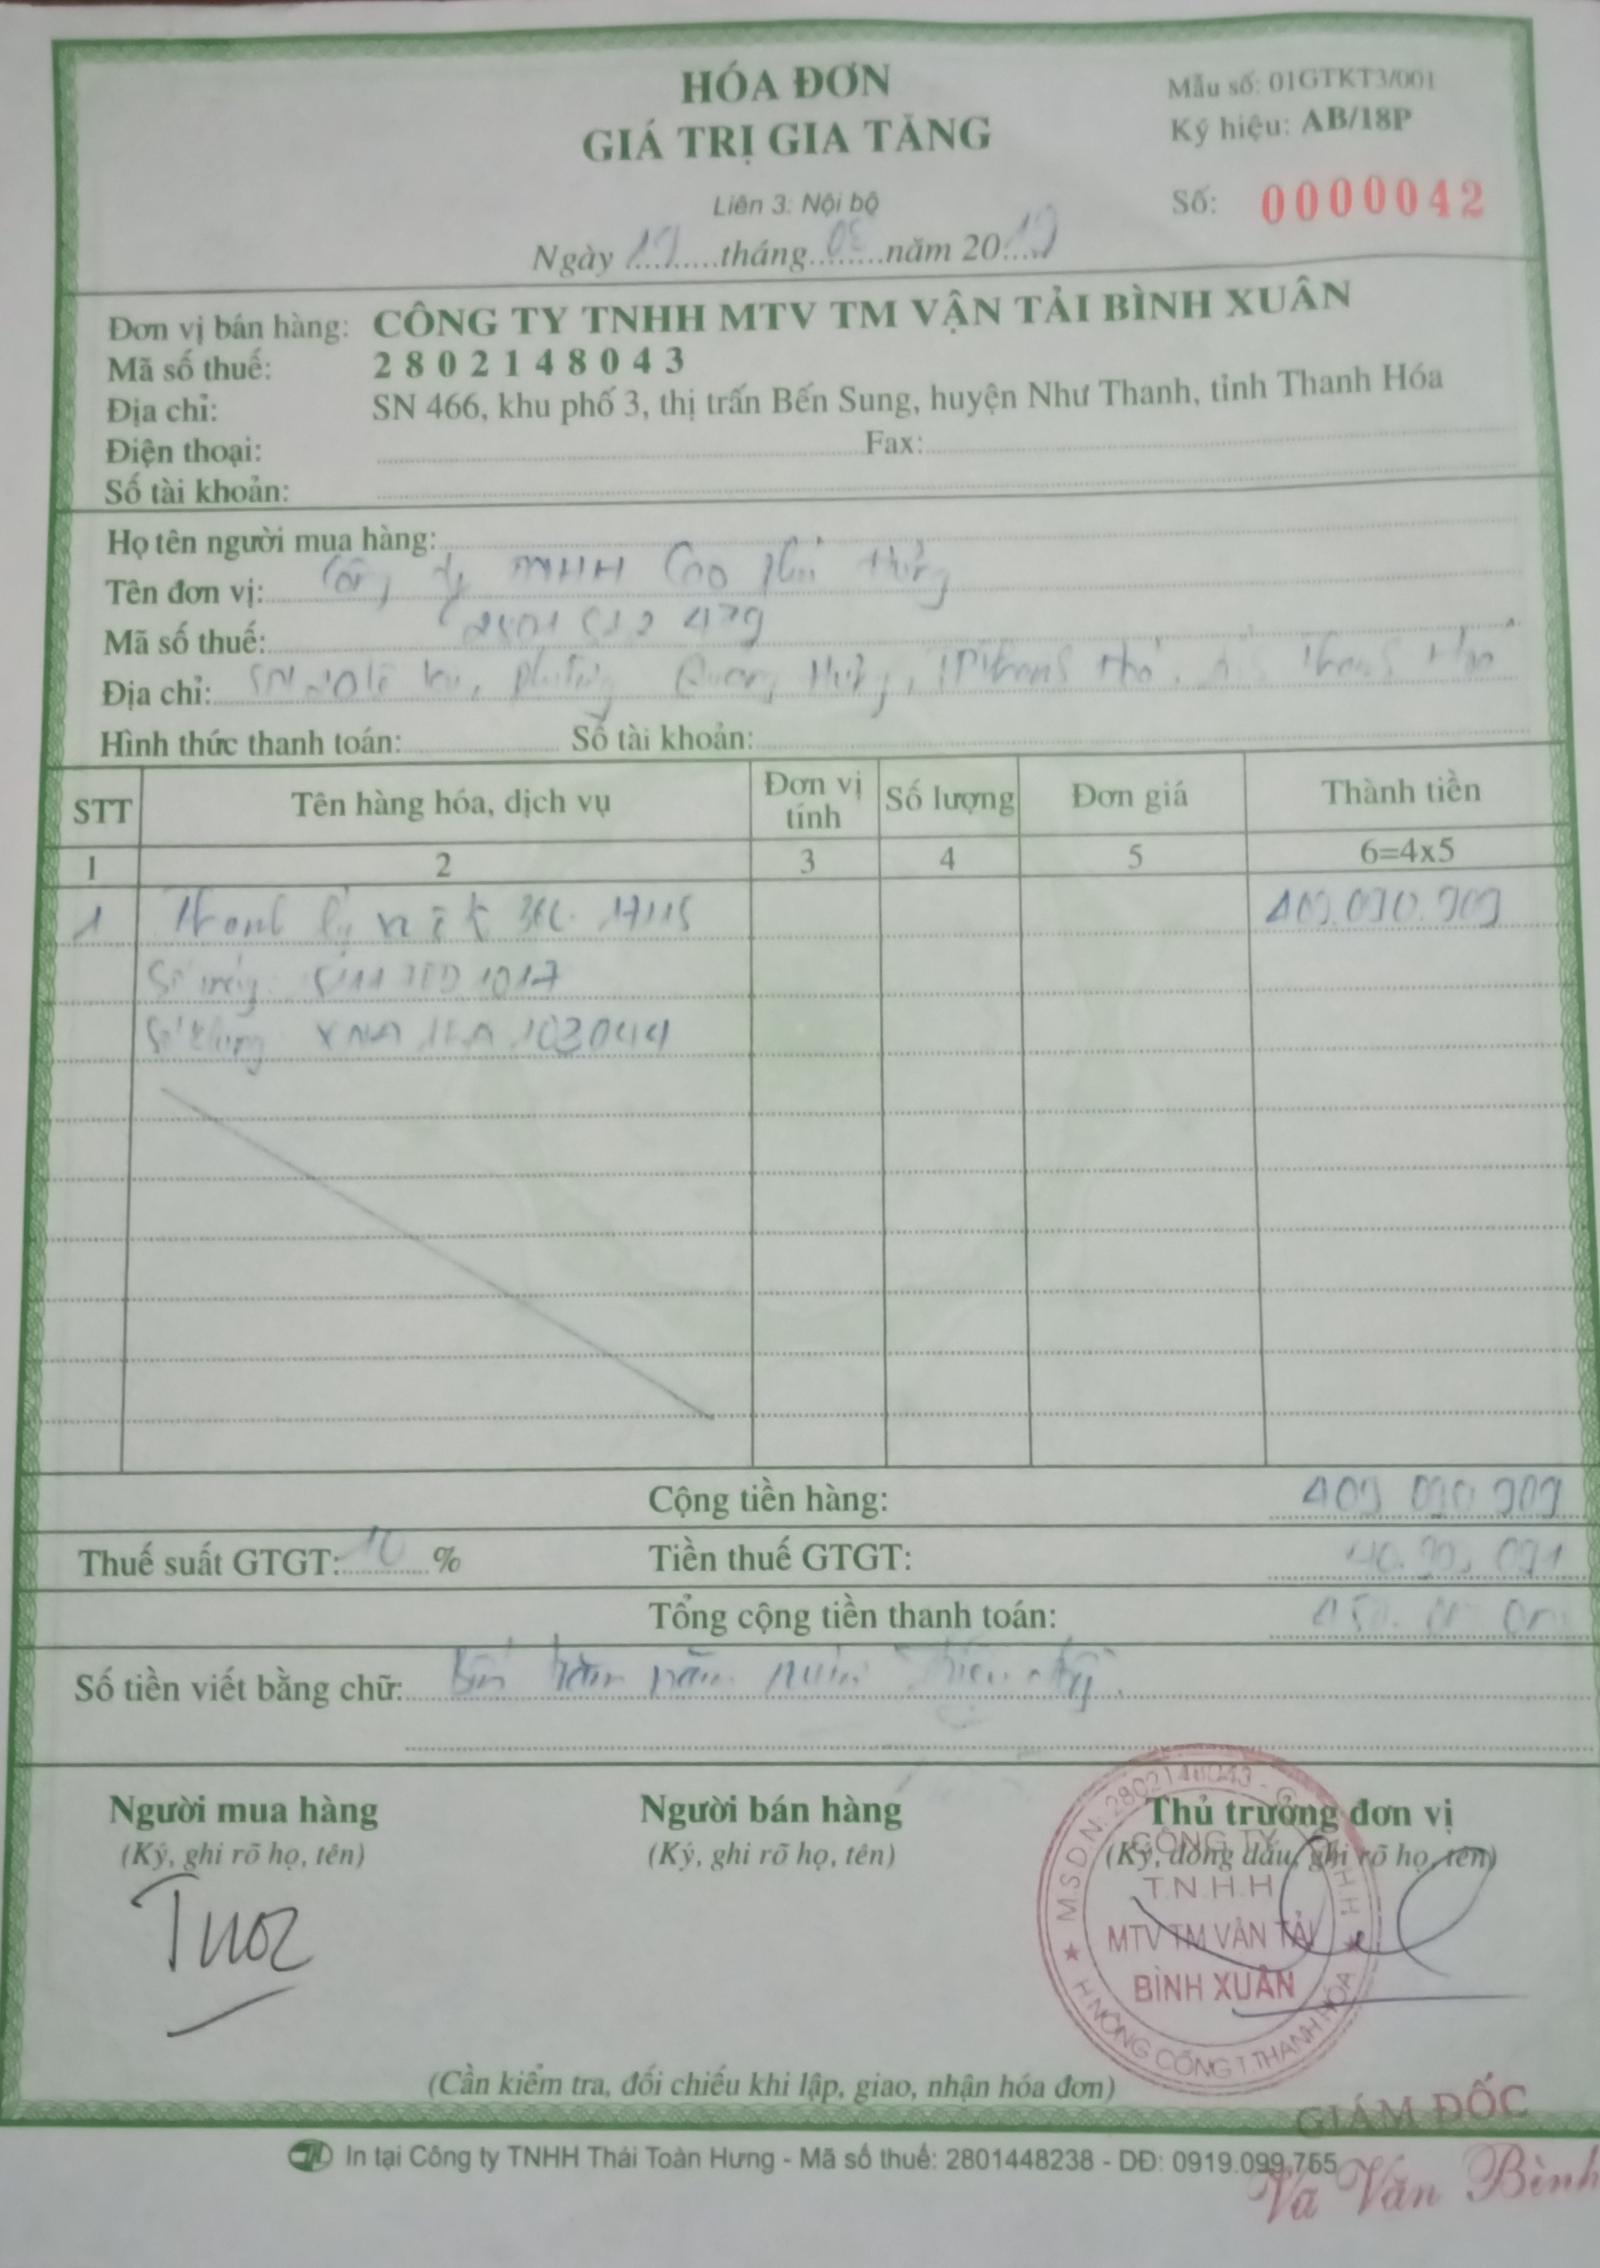 HÓA ĐƠN
GIÁ TRỊ GIA TĂNG
Mẫu số: 01GTKT3/001
Ký hiệu: AB/18P
Liên 3: Nội bộ
Số: 0000042
Ngày ..........tháng.........năm 20.....
Đơn vị bán hàng: CÔNG TY TNHH MTV TM VẬN TẢI BÌNH XUÂN
Mã số thuế: 2802148043
Địa chỉ: SN 466, khu phố 3, thị trấn Bến Sung, huyện Như Thanh, tỉnh Thanh Hóa
Điện thoại: Fax:
Số tài khoản:
Họ tên người mua hàng:
Tên đơn vị: Công ty TNHH Cao
Mã số thuế:
Địa chỉ: Quảng Hưng, TP Thanh Hóa, Thanh Hóa
Hình thức thanh toán: Số tài khoản:
STT Tên hàng hóa, dịch vụ Đơn vị tính Số lượng Đơn giá Thành tiền
1 2 3 4 5 6=4x5
1 Thanh lý 409.090.909
Số máy:
Số khung:
Cộng tiền hàng: 409.090.909
Thuế suất GTGT: 10 % Tiền thuế GTGT: 40.909.091
Tổng cộng tiền thanh toán: 450.000.000
Số tiền viết bằng chữ: Bốn trăm năm mươi triệu
Người mua hàng Người bán hàng Thủ trưởng đơn vị
(Ký, ghi rõ họ, tên) (Ký, ghi rõ họ, tên) (Ký, đóng dấu, ghi rõ họ, tên)
M.S.D.N: 2802148043
CÔNG TY
T.N.H.H
MTV TM VẬN TẢI
BÌNH XUÂN
H.NÔNG CỐNG T.THANH HÓA
(Cần kiểm tra, đối chiếu khi lập, giao, nhận hóa đơn)
GIÁM ĐỐC
In tại Công ty TNHH Thái Toàn Hưng - Mã số thuế: 2801448238 - DĐ: 0919.099.765
Văn Bình